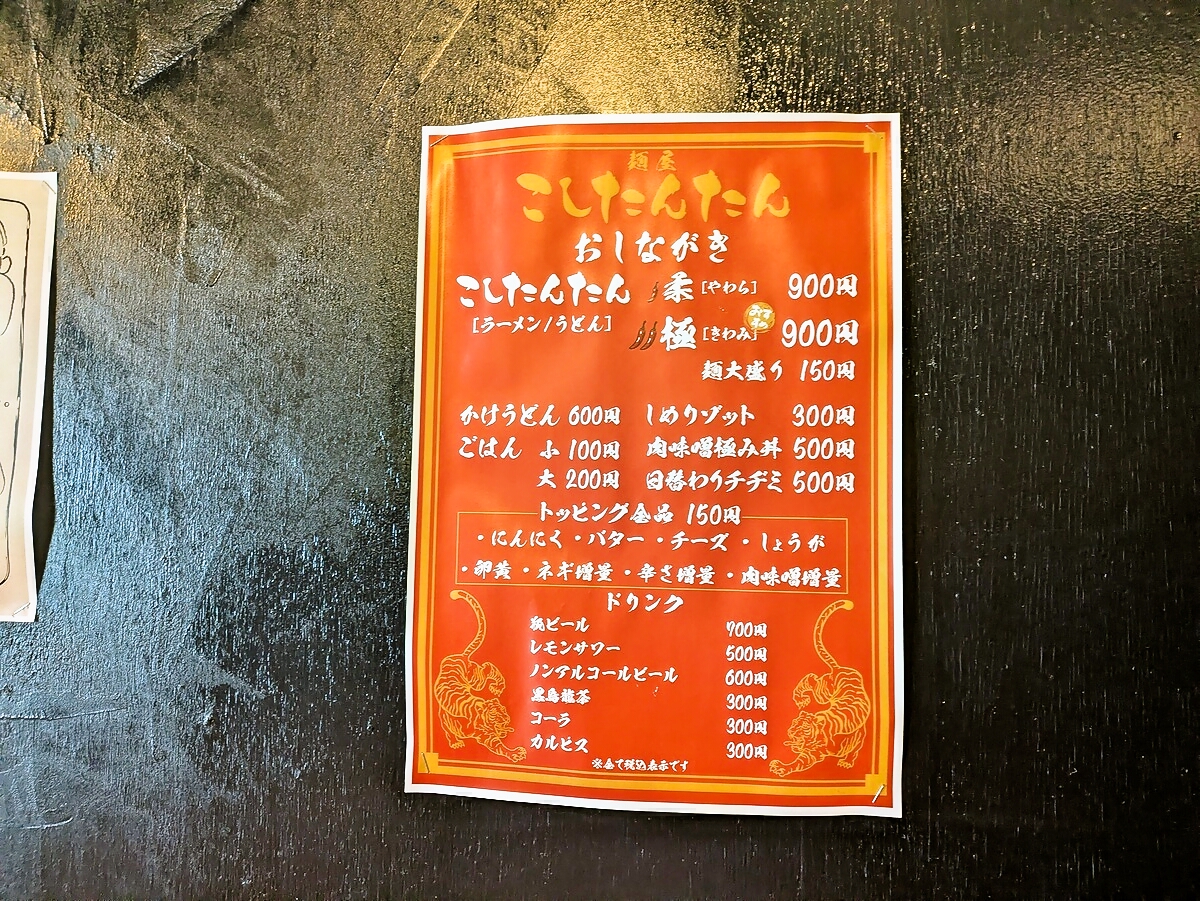 麺屋
こしたんたん
おしながき
こしたんたん 柔 [やわら] 900円
[ラーメン/うどん]
おすすめ
極 [きわみ] 900円
麺大盛り 150円
かけうどん 600円 しめリゾット 300円
ごはん 小 100円 肉味噌極み丼 500円
大 200円 日替わりチヂミ 500円
トッピング全品 150円
・にんにく ・バター ・チーズ ・しょうが
・卵黄 ・ネギ増量 ・辛さ増量 ・肉味噌増量
ドリンク
瓶ビール 700円
レモンサワー 500円
ノンアルコールビール 600円
黒烏龍茶 300円
コーラ 300円
カルピス 300円
※全て税込表示です